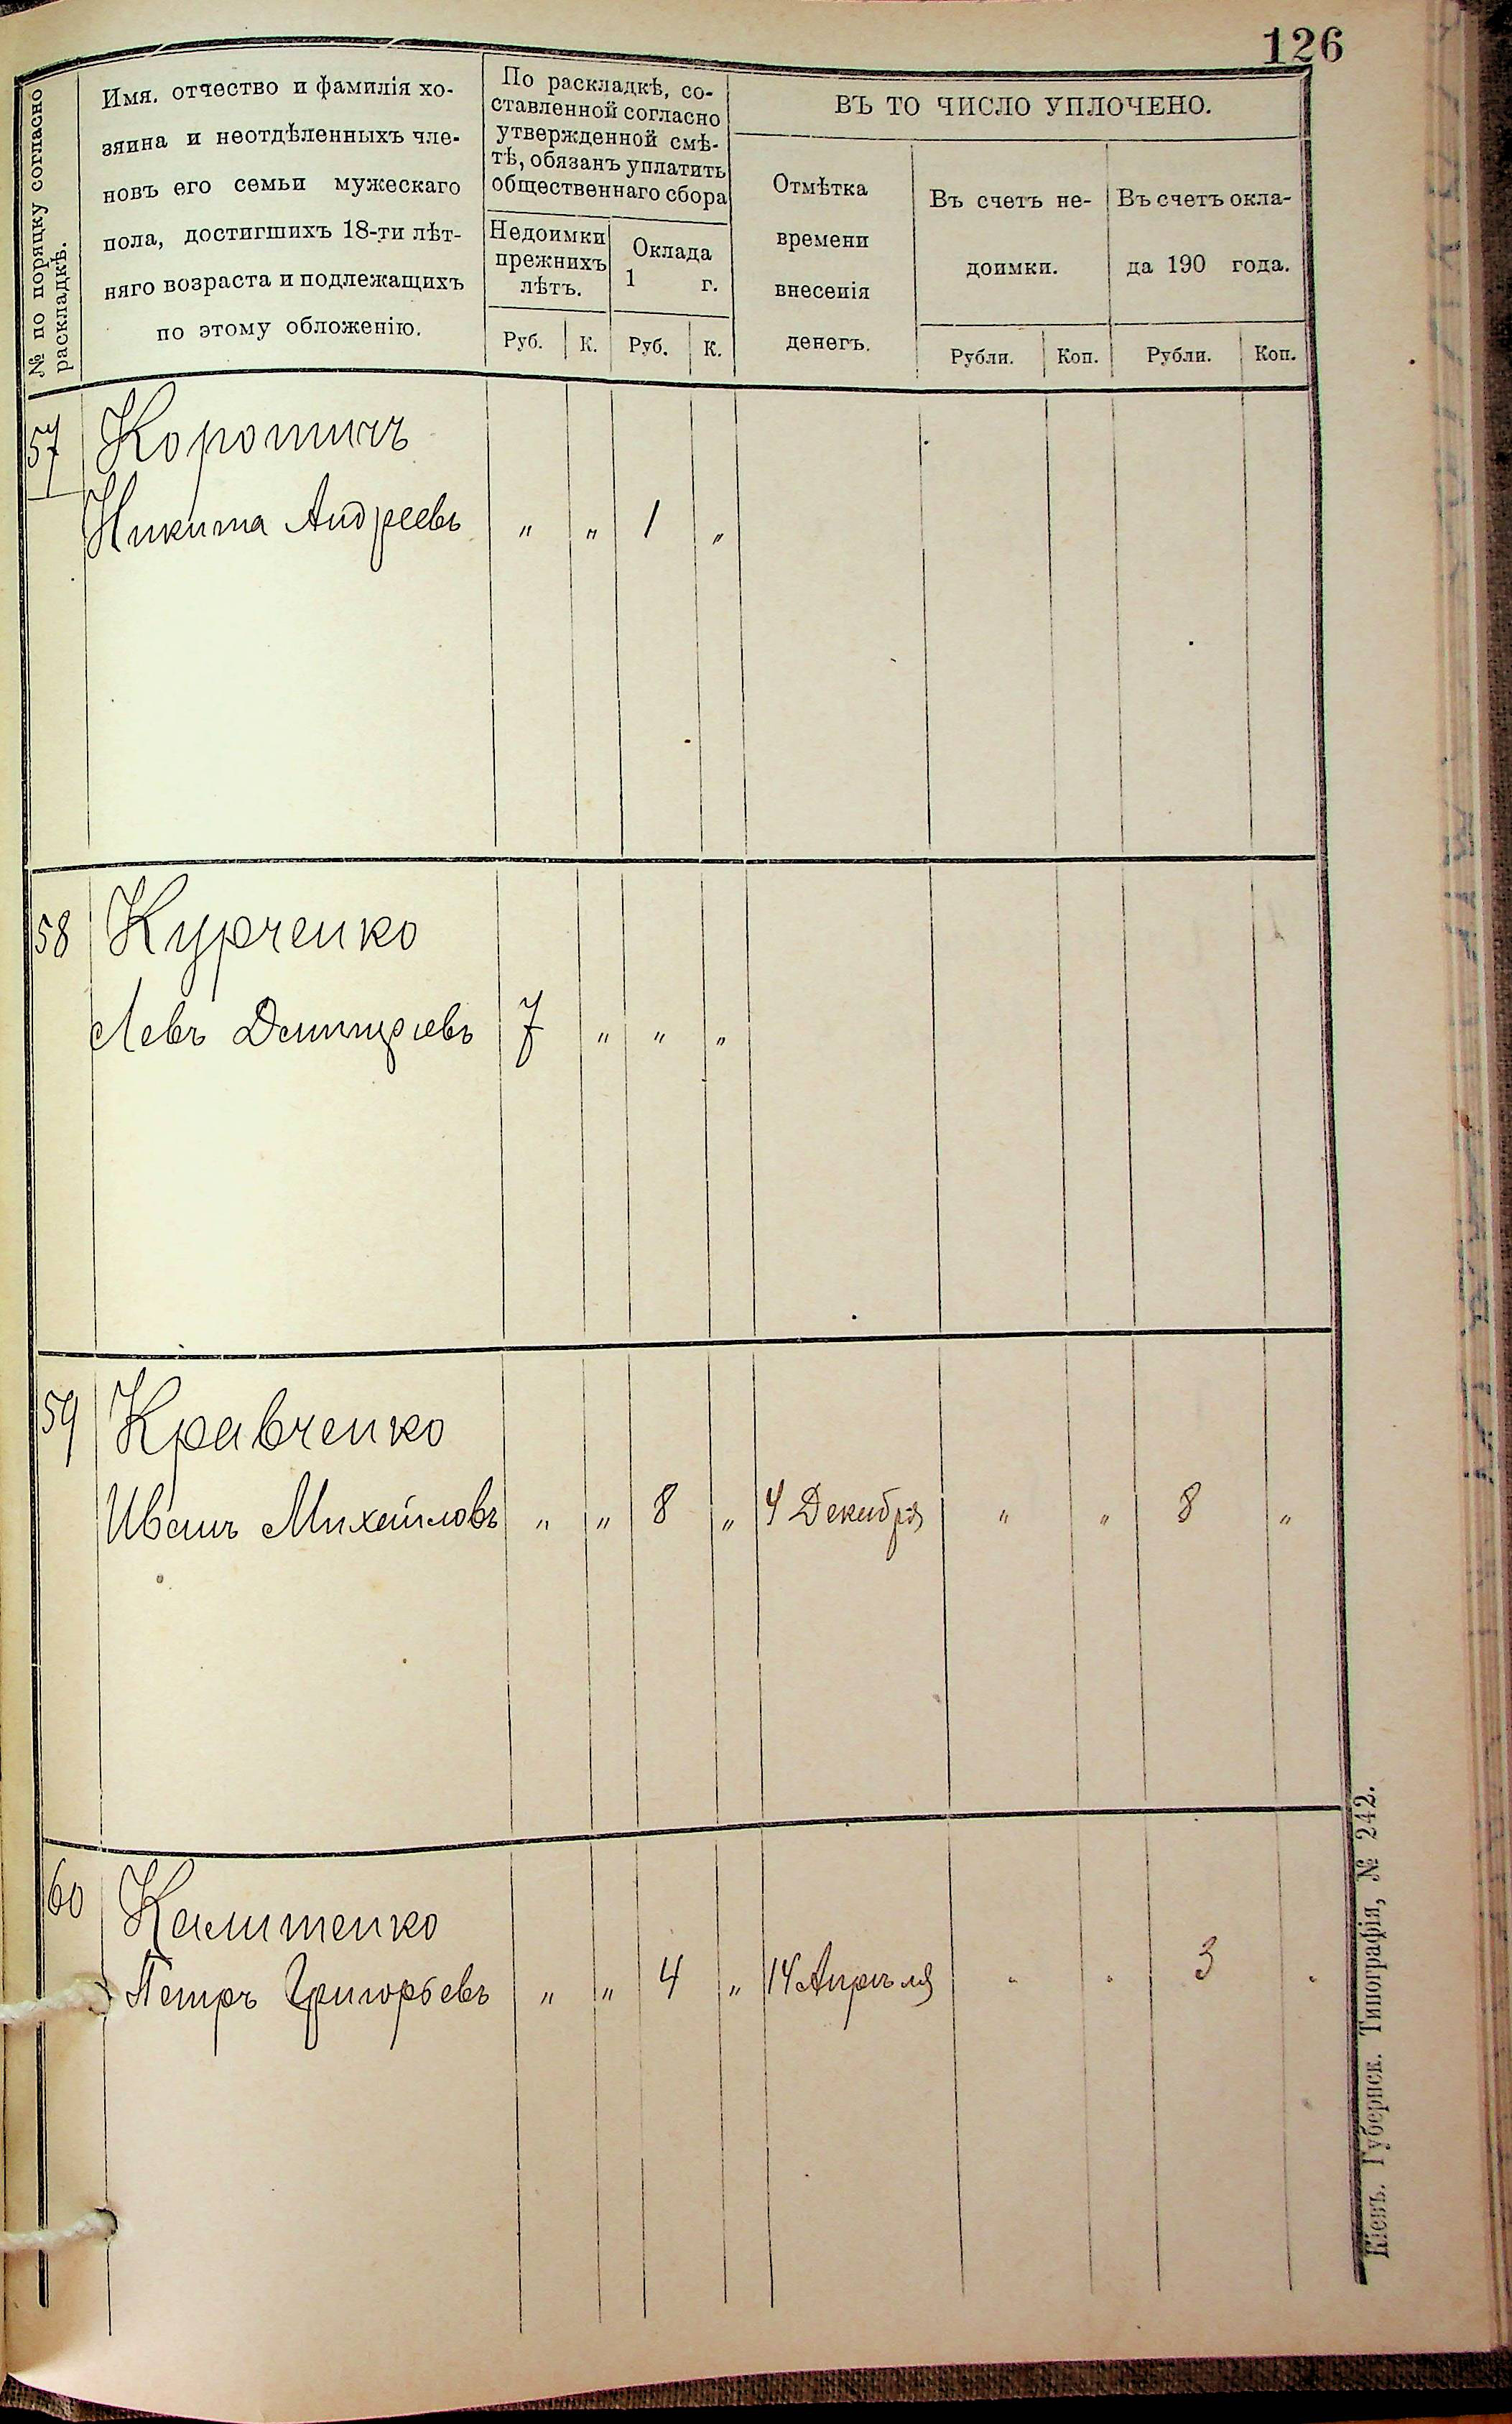 126
№ по порядку согласно
раскладкѣ.
Имя, отчество и фамилія хо-
зяина и неотдѣленныхъ чле-
новъ его семьи мужескаго
пола, достигшихъ 18-ти лѣт-
няго возраста и подлежащихъ
по этому обложенію.
По раскладкѣ, со-
ставленной согласно
утвержденной смѣ-
тѣ, обязанъ уплатить
общественнаго сбора
Недоимки
прежнихъ
лѣтъ.
Оклада
1 г.
Руб. К. Руб. К.
ВЪ ТО ЧИСЛО УПЛОЧЕНО.
Отмѣтка
времени
внесенія
денегъ.
Въ счетъ не-
доимки.
Въ счетъ окла-
да 190 года.
Рубли. Коп. Рубли. Коп.
57 Коротичъ
Никита Андреевъ „ „ 1 „
58 Курченко
Левъ 7 „ „ „
59 Кравченко
Иванъ Михайловъ „ „ 8 „ 4 Декабря „ „ 8 „
60
Петръ Григорьевъ „ „ 4 „ 14 Апрѣля „ „ 3 „
Кіевъ. Губернск. Типографія, № 242.